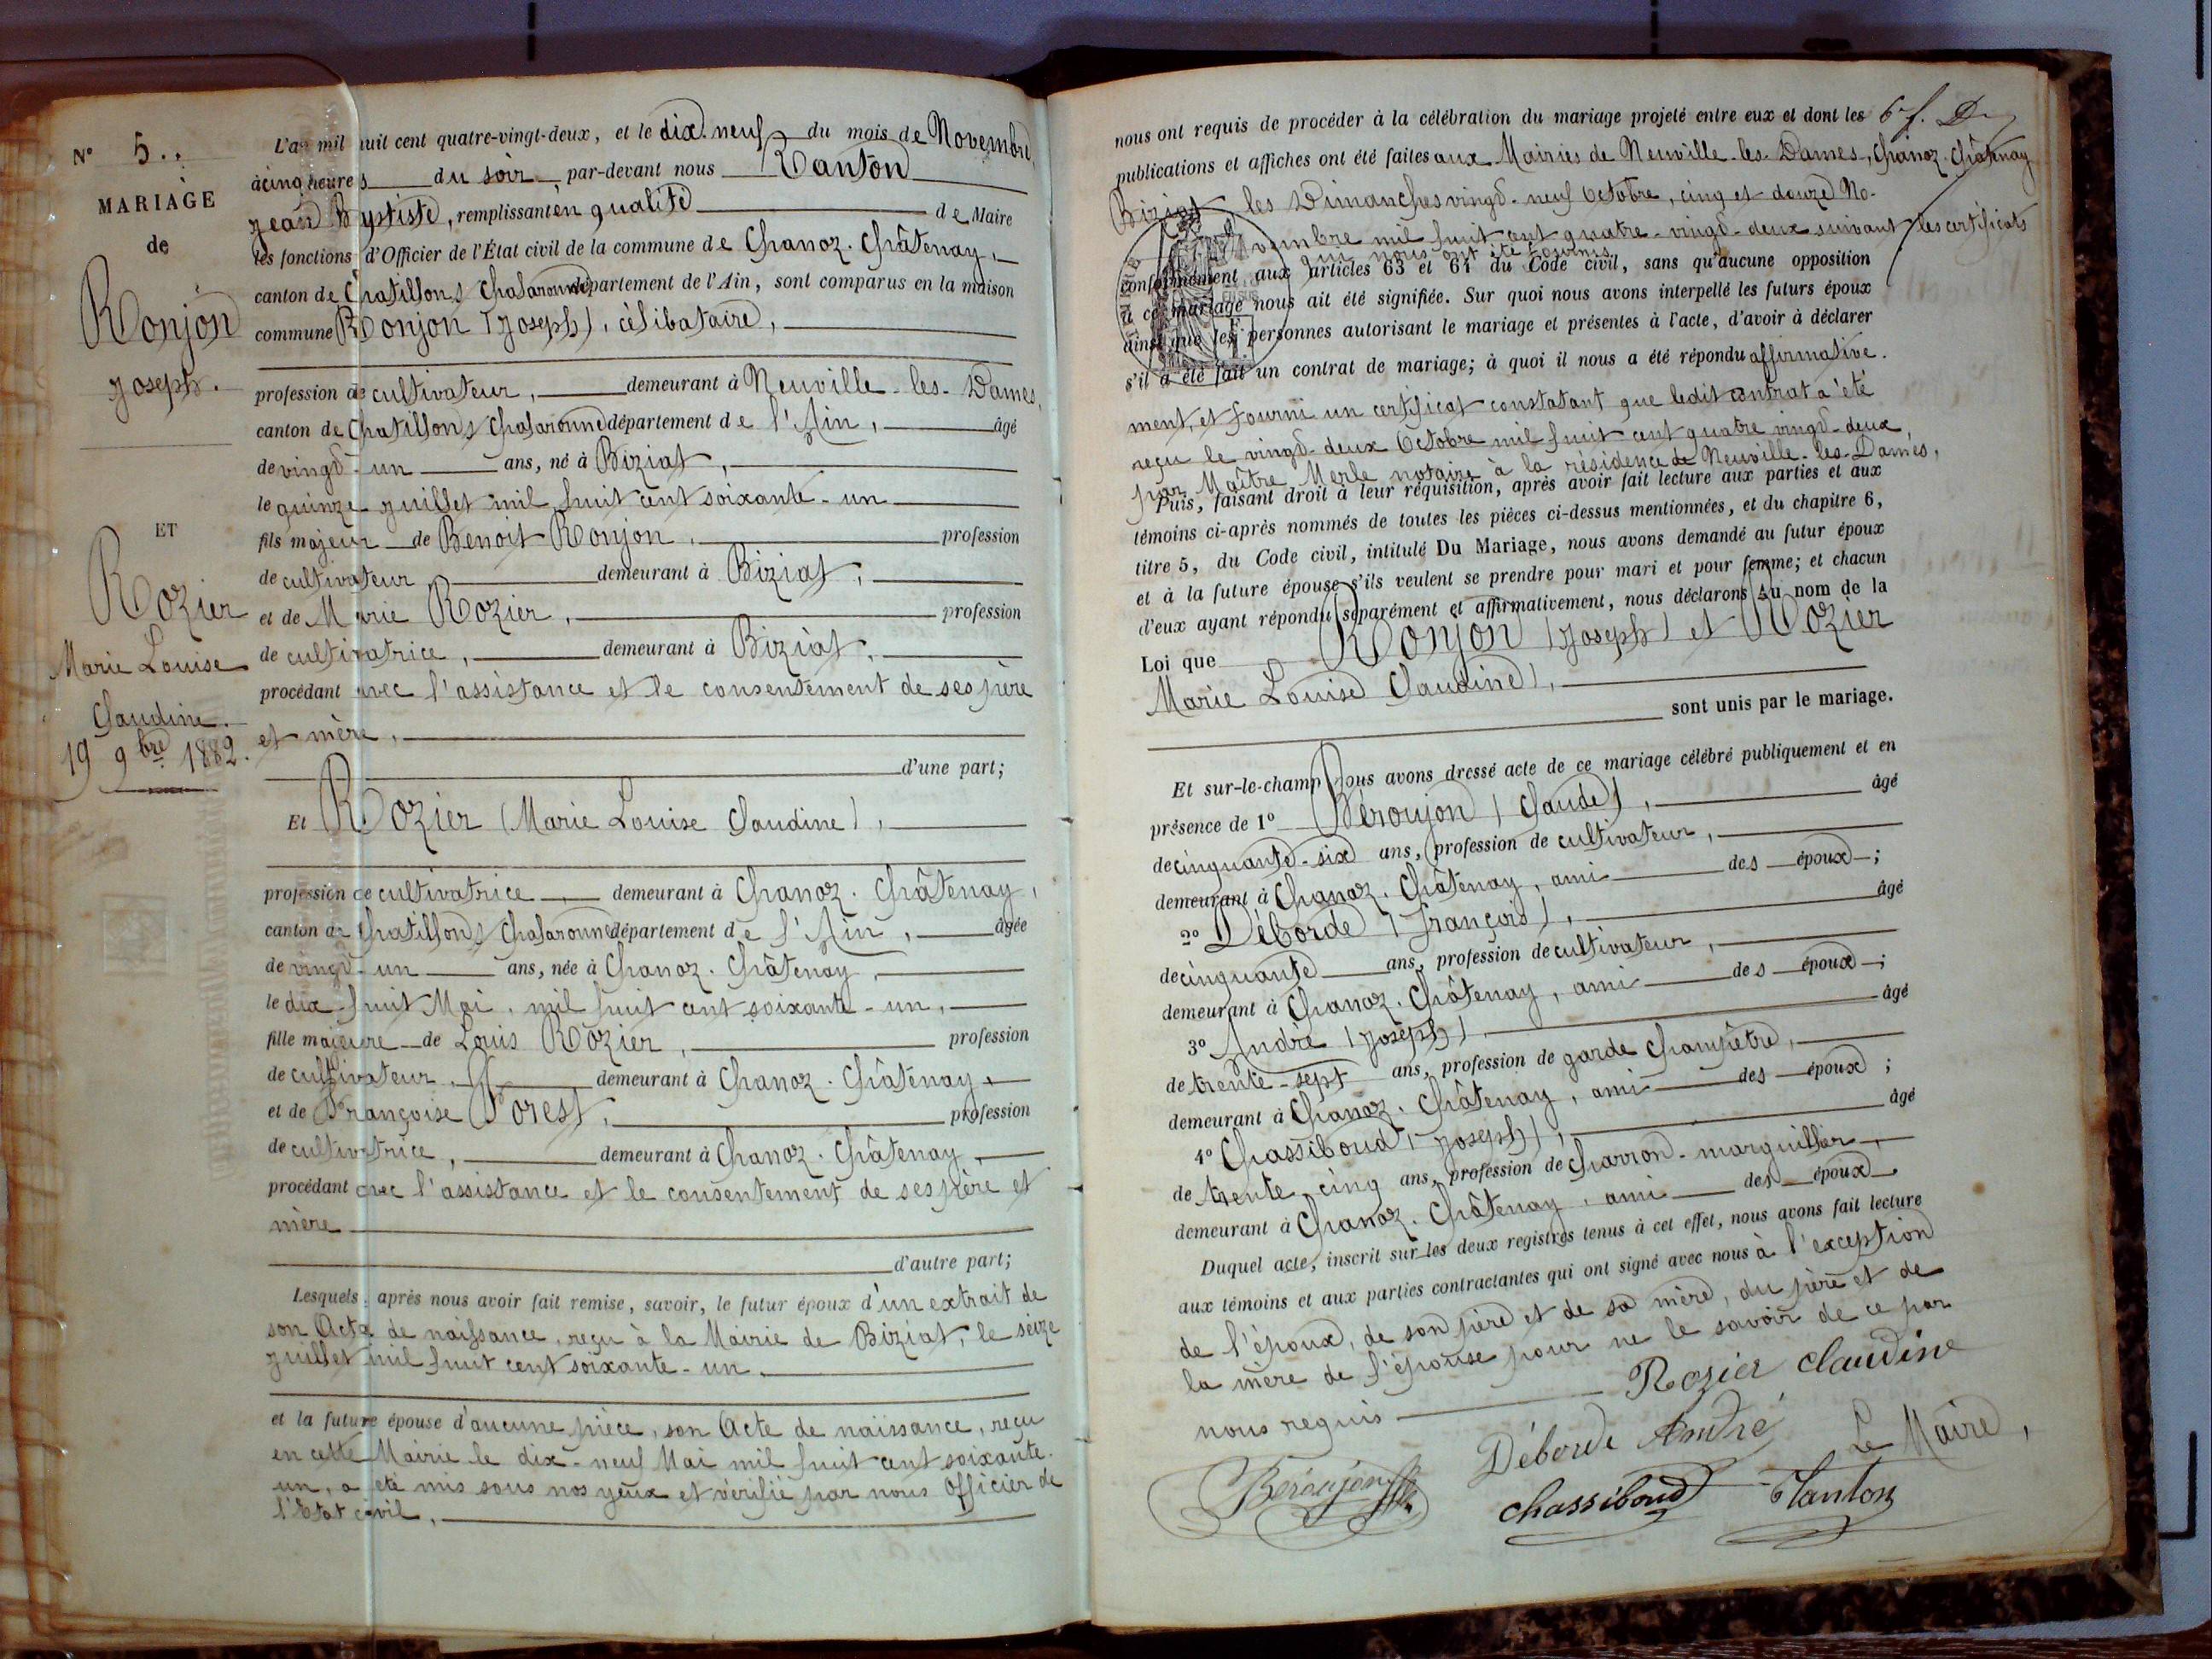 N° 5.
MARIAGE
de
Ronjon
Joseph.
ET
Rozier
Marie Louise
Claudine.
19 9bre 1882.
L'an mil huit cent quatre-vingt-deux, et le dix-neuf du mois de Novembre,
à cinq heures du soir par-devant nous Ranton
Jean Baptiste, remplissant en qualité de Maire
les fonctions d'Officier de l'État civil de la commune de Chanoz-Châtenay,
canton de Chatillon s/ Chalaronne département de l'Ain, sont comparus en la maison
commune Ronjon (Joseph), célibataire,
profession de cultivateur, demeurant à Neuville-les-Dames,
canton de Chatillon s/ Chalaronne département de l'Ain, âgé
de vingt-un ans, né à Biziat,
le quinze juillet mil huit cent soixante-un
fils majeur de Benoit Ronjon, profession
de cultivateur, demeurant à Biziat,
et de Marie Rozier, profession
de cultivatrice, demeurant à Biziat,
procédant avec l'assistance et le consentement de ses père
et mère,
d'une part;
Et Rozier (Marie Louise Claudine),
profession de cultivatrice demeurant à Chanoz-Châtenay,
canton de Chatillon s/ Chalaronne département de l'Ain, âgée
de vingt-un ans, née à Chanoz-Châtenay,
le dix-huit Mai, mil huit cent soixante-un,
fille majeure de Louis Rozier, profession
de cultivateur, demeurant à Chanoz-Châtenay,
et de Françoise Forest, profession
de cultivatrice, demeurant à Chanoz-Châtenay,
procédant avec l'assistance et le consentement de ses père et
mère
d'autre part;
Lesquels, après nous avoir fait remise, savoir, le futur époux d'un extrait de
son Acte de naissance, reçu à la Mairie de Biziat, le seize
juillet mil huit cent soixante-un,
et la future épouse d'aucune pièce, son Acte de naissance, reçu
en cette Mairie le dix-neuf Mai mil huit cent soixante-
un, a été mis sous nos yeux et vérifié par nous Officier de
l'Etat civil,
nous ont requis de procéder à la célébration du mariage projeté entre eux et dont les
publications et affiches ont été faites aux Mairies de Neuville-les-Dames, Chanoz-Châtenay
Biziat les Dimanches vingt-neuf Octobre, cinq et douze No-
vembre mil huit cent quatre-vingt-deux suivant les certificats
qui nous ont été fournis
conformément aux articles 63 et 64 du Code civil, sans qu'aucune opposition
à ce mariage nous ait été signifiée. Sur quoi nous avons interpellé les futurs époux
ainsi que les personnes autorisant le mariage et présentes à l'acte, d'avoir à déclarer
s'il a été fait un contrat de mariage; à quoi il nous a été répondu affirmative-
ment, et fourni un certificat constatant que ledit contrat a été
reçu le vingt-deux Octobre mil huit cent quatre vingt-deux,
par Maître Merle notaire à la résidence de Neuville-les-Dames,
Puis, faisant droit à leur réquisition, après avoir fait lecture aux parties et aux
témoins ci-après nommés de toutes les pièces ci-dessus mentionnées, et du chapitre 6,
titre 5, du Code civil, intitulé Du Mariage, nous avons demandé au futur époux
et à la future épouse s'ils veulent se prendre pour mari et pour femme; et chacun
d'eux ayant répondu séparément et affirmativement, nous déclarons au nom de la
Loi que Ronjon (Joseph) et Rozier
Marie Louise Claudine),
sont unis par le mariage.
Et sur-le-champ nous avons dressé acte de ce mariage célébré publiquement et en
présence de 1° Béroujon (Claude), âgé
de cinquante-six ans, profession de cultivateur,
demeurant à Chanoz-Châtenay, ami des époux;
2° Déborde (François), âgé
de cinquante ans, profession de cultivateur,
demeurant à Chanoz-Châtenay, ami des époux;
3° André (Joseph), âgé
de trente-sept ans, profession de garde champêtre,
demeurant à Chanoz-Châtenay, ami des époux;
4° Chassiboud (Joseph), âgé
de trente cinq ans, profession de charron-marguillier,
demeurant à Chanoz-Châtenay, ami des époux
Duquel acte, inscrit sur les deux registres tenus à cet effet, nous avons fait lecture
aux témoins et aux parties contractantes qui ont signé avec nous à l'exception
de l'époux, de son père et de sa mère, du père et de
la mère de l'épouse pour ne le savoir de ce par
nous requis
Rozier Claudine
Déborde André Le Maire,
Béroujon Chassiboud Ranton